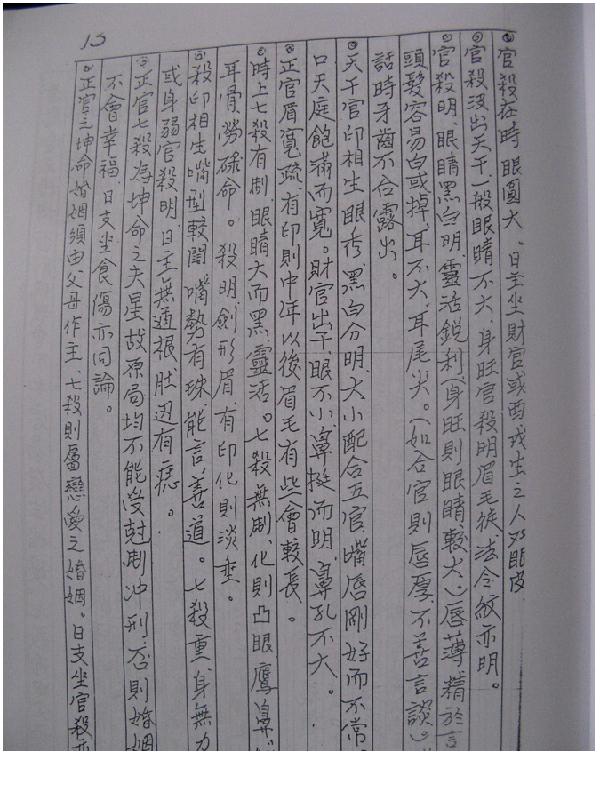 15
官殺在時眼圓大。日主坐財官或酉戌生之人双眼皮
官殺沒出天干一般眼睛不大、身旺官殺明眉毛徒、法令紋亦明。
官殺明、眼睛黑白明、靈活銳利(身旺則眼睛較大)唇薄、精於言
頭髮容易白或掉、耳不大、耳尾尖。(如合官則唇厚、不善言談)
話時牙齒不合露出。
天干官印相生眼秀、黑白分明、大小配合五官嘴唇剛好而不常
口天庭飽滿而寬。財官出干、眼不小、鼻挺而明、鼻孔不大。
正官眉寬疏、有印則中年以後眉毛有些會較長。
時上七殺有制、眼睛大而黑靈活。七殺無制、化則凸眼鷹鼻、
耳骨勞碌命。殺明劍形眉、有印化則淡垂。
殺印相生嘴型較闊、嘴勢有珠、能言善道。七殺重身無力
或身弱官殺明、日主無通根、肚辺有痣。
正官七殺為坤命之夫星故原局均不能受尅制冲刑、否則婚姻
不會幸福、日支坐食傷亦同論。
正官之坤命婚姻須由父母作主、七殺則屬戀愛之婚姻。日支坐官殺